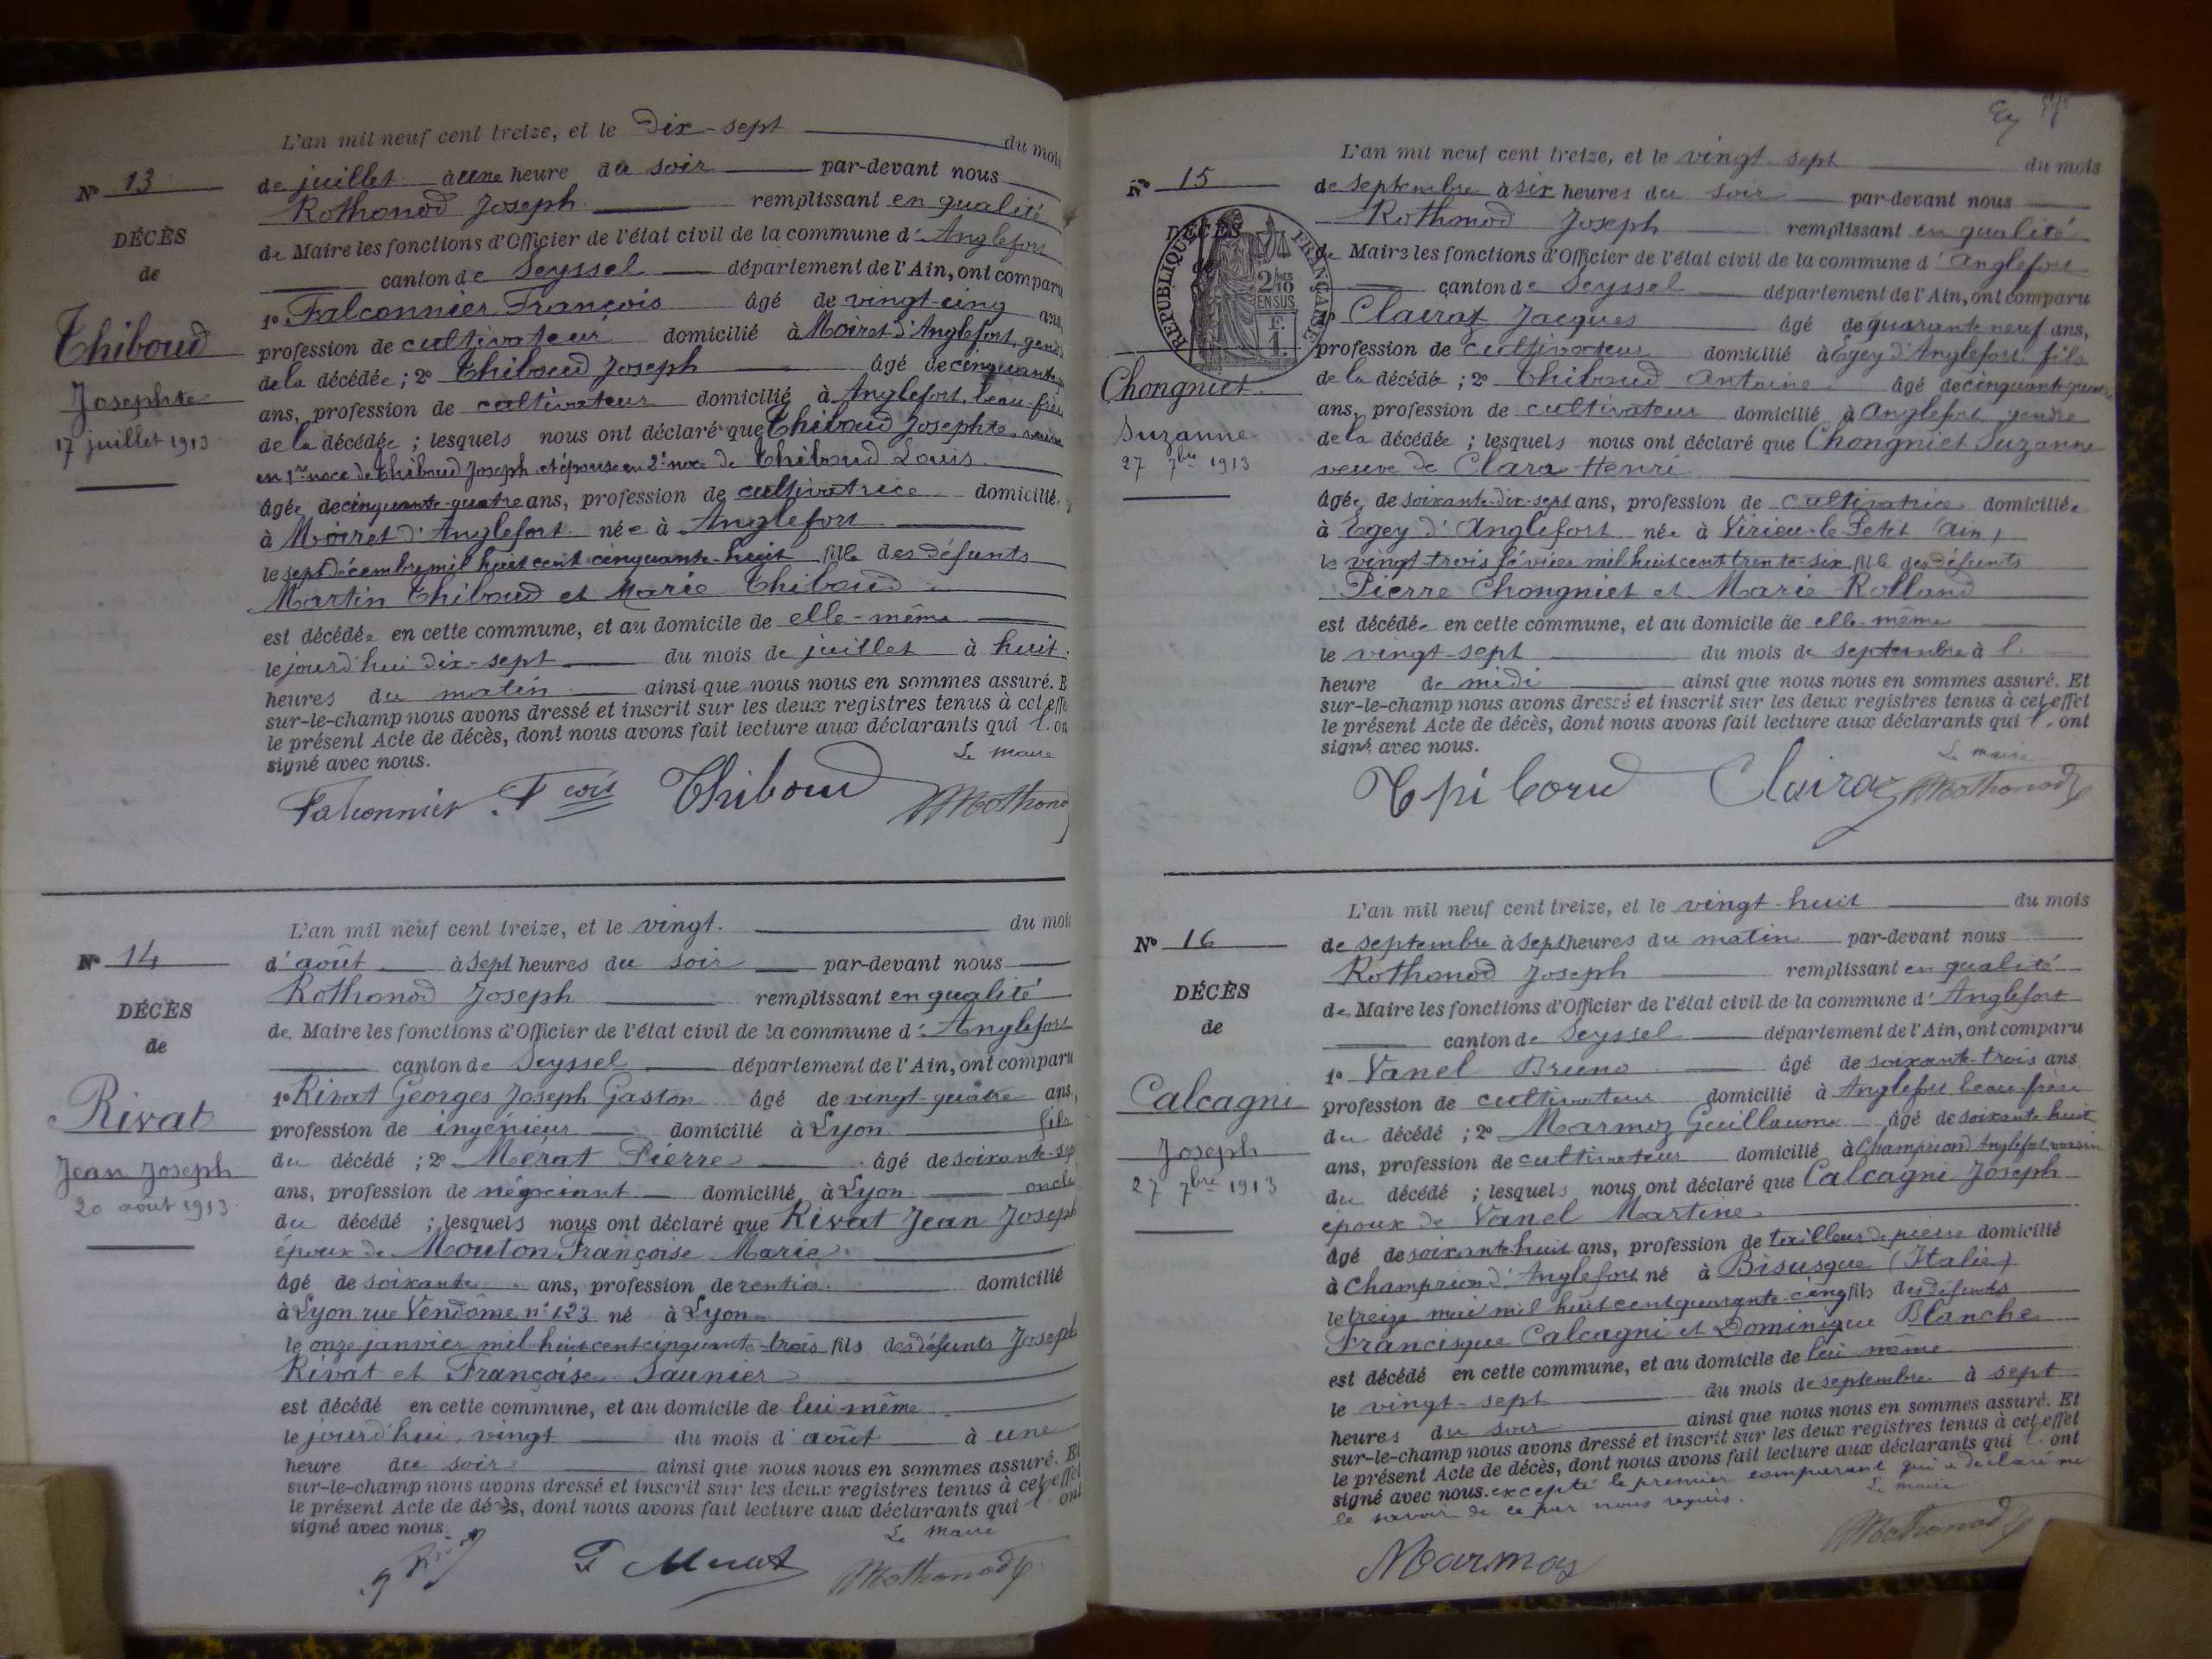 L'an mil neuf cent treize, et le Dix-sept du mois
N° 13
de juillet à une heure du soir par-devant nous
Rothonod Joseph remplissant en qualité
DÉCÈS
de Maire les fonctions d'Officier de l'état civil de la commune d'Anglefort
de
canton de Seyssel département de l'Ain, ont comparu
1° Falconnier François âgé de vingt-cinq ans,
Thiboud
profession de cultivateur domicilié à Moiret d'Anglefort, gendre
de la décédée ; 2° Thiboud Joseph âgé de cinquante
Josephte
ans, profession de cultivateur domicilié à Anglefort, beau-frère
17 juillet 1913
de la décédée ; lesquels nous ont déclaré que Thiboud Josephte, veuve
en 1re noce de Thiboud Joseph et épouse en 2e noce de Thiboud Louis
âgée de cinquante-quatre ans, profession de cultivatrice domiciliée
à Moiret d'Anglefort née à Anglefort
le sept décembre mil huit cent cinquante-huit fille des défunts
Martin Thiboud et Marie Thiboud
est décédée en cette commune, et au domicile de elle-même
le jourd'hui dix-sept du mois de juillet à huit
heures du matin ainsi que nous nous en sommes assuré. E
sur-le-champ nous avons dressé et inscrit sur les deux registres tenus à cet effe
le présent Acte de décès, dont nous avons fait lecture aux déclarants qui l'on
signé avec nous.
Le maire
Falconnier Fcois Thiboud Rothonod
L'an mil neuf cent treize, et le vingt du mois
N° 14
d'août à sept heures du soir par-devant nous
Rothonod Joseph remplissant en qualité
DÉCÈS
de Maire les fonctions d'Officier de l'état civil de la commune d'Anglefort
de
canton de Seyssel département de l'Ain, ont comparu
1° Rivat Georges Joseph Gaston âgé de vingt-quatre ans,
Rivat
profession de ingénieur domicilié à Lyon fils
du décédé ; 2° Mérat Pierre âgé de soixante-sep
Jean Joseph
ans, profession de négociant domicilié à Lyon oncle
20 août 1913
du décédé ; lesquels nous ont déclaré que Rivat Jean Joseph
époux de Mouton Françoise Marie
âgé de soixante ans, profession de rentier domicilié
à Lyon rue Vendôme n° 123 né à Lyon
le onze janvier mil huit cent cinquante-trois fils des défunts Joseph
Rivat et Françoise Saunier
est décédé en cette commune, et au domicile de lui-même
le jourd'hui vingt du mois d'août à une
heure du soir ainsi que nous nous en sommes assuré. Et
sur-le-champ nous avons dressé et inscrit sur les deux registres tenus à cet effet
le présent Acte de décès, dont nous avons fait lecture aux déclarants qui l'ont
signé avec nous.
Le maire
P Merat Rothonod
L'an mil neuf cent treize, et le vingt-sept du mois
N° 15
de septembre à six heures du soir par-devant nous
Rothonod Joseph remplissant en qualité
DÉCÈS
de Maire les fonctions d'Officier de l'état civil de la commune d'Anglefort
de
RÉPUBLIQUE FRANÇAISE
2/10 MES EN SUS
F. 1.
canton de Seyssel département de l'Ain, ont comparu
1° Clairaz Jacques âgé de quarante-neuf ans,
profession de cultivateur domicilié à Egey d'Anglefort fils
Chongniet
de la décédée ; 2° Thiboud Antoine âgé de cinquante-
ans, profession de cultivateur domicilié à Anglefort gendre
Suzanne
de la décédée ; lesquels nous ont déclaré que Chongniet Suzanne
27 7bre 1913
veuve de Claraz Henri
âgée de soixante-dix-sept ans, profession de cultivatrice domiciliée
à Egey d'Anglefort née à Virieu-le-Petit (Ain)
le vingt-trois février mil huit cent trente-six fille des défunts
Pierre Chongniet et Marie Rolland
est décédée en cette commune, et au domicile de elle-même
le vingt-sept du mois de septembre à l'
heure de midi ainsi que nous nous en sommes assuré. Et
sur-le-champ nous avons dressé et inscrit sur les deux registres tenus à cet effet
le présent Acte de décès, dont nous avons fait lecture aux déclarants qui l'ont
signé avec nous.
Le maire
Thiboud Clairaz Rothonod
L'an mil neuf cent treize, et le vingt-huit du mois
N° 16
de septembre à sept heures du matin par-devant nous
Rothonod Joseph remplissant en qualité
DÉCÈS
de Maire les fonctions d'Officier de l'état civil de la commune d'Anglefort
de
canton de Seyssel département de l'Ain, ont comparu
1° Vanel Bruno âgé de soixante-trois ans
Calcagni
profession de cultivateur domicilié à Anglefort beau-frère
du décédé ; 2° Marmoz Guillaume âgé de soixante-huit
Joseph
ans, profession de cultivateur domicilié à Champriond Anglefort voisin
27 7bre 1913
du décédé ; lesquels nous ont déclaré que Calcagni Joseph
époux de Vanel Martine
âgé de soixante-huit ans, profession de tailleur de pierre domicilié
à Champriond d'Anglefort né à Bisusque (Italie)
le treize mai mil huit cent quarante-cinq fils des défunts
Francisque Calcagni et Dominique Blanche
est décédé en cette commune, et au domicile de lui-même
le vingt-sept du mois de septembre à sept
heures du soir ainsi que nous nous en sommes assuré. Et
sur-le-champ nous avons dressé et inscrit sur les deux registres tenus à cet effet
le présent Acte de décès, dont nous avons fait lecture aux déclarants qui l'ont
signé avec nous. excepté le premier comparant qui a déclaré ne
le savoir de ce par nous requis.
Le maire
Marmoz Rothonod